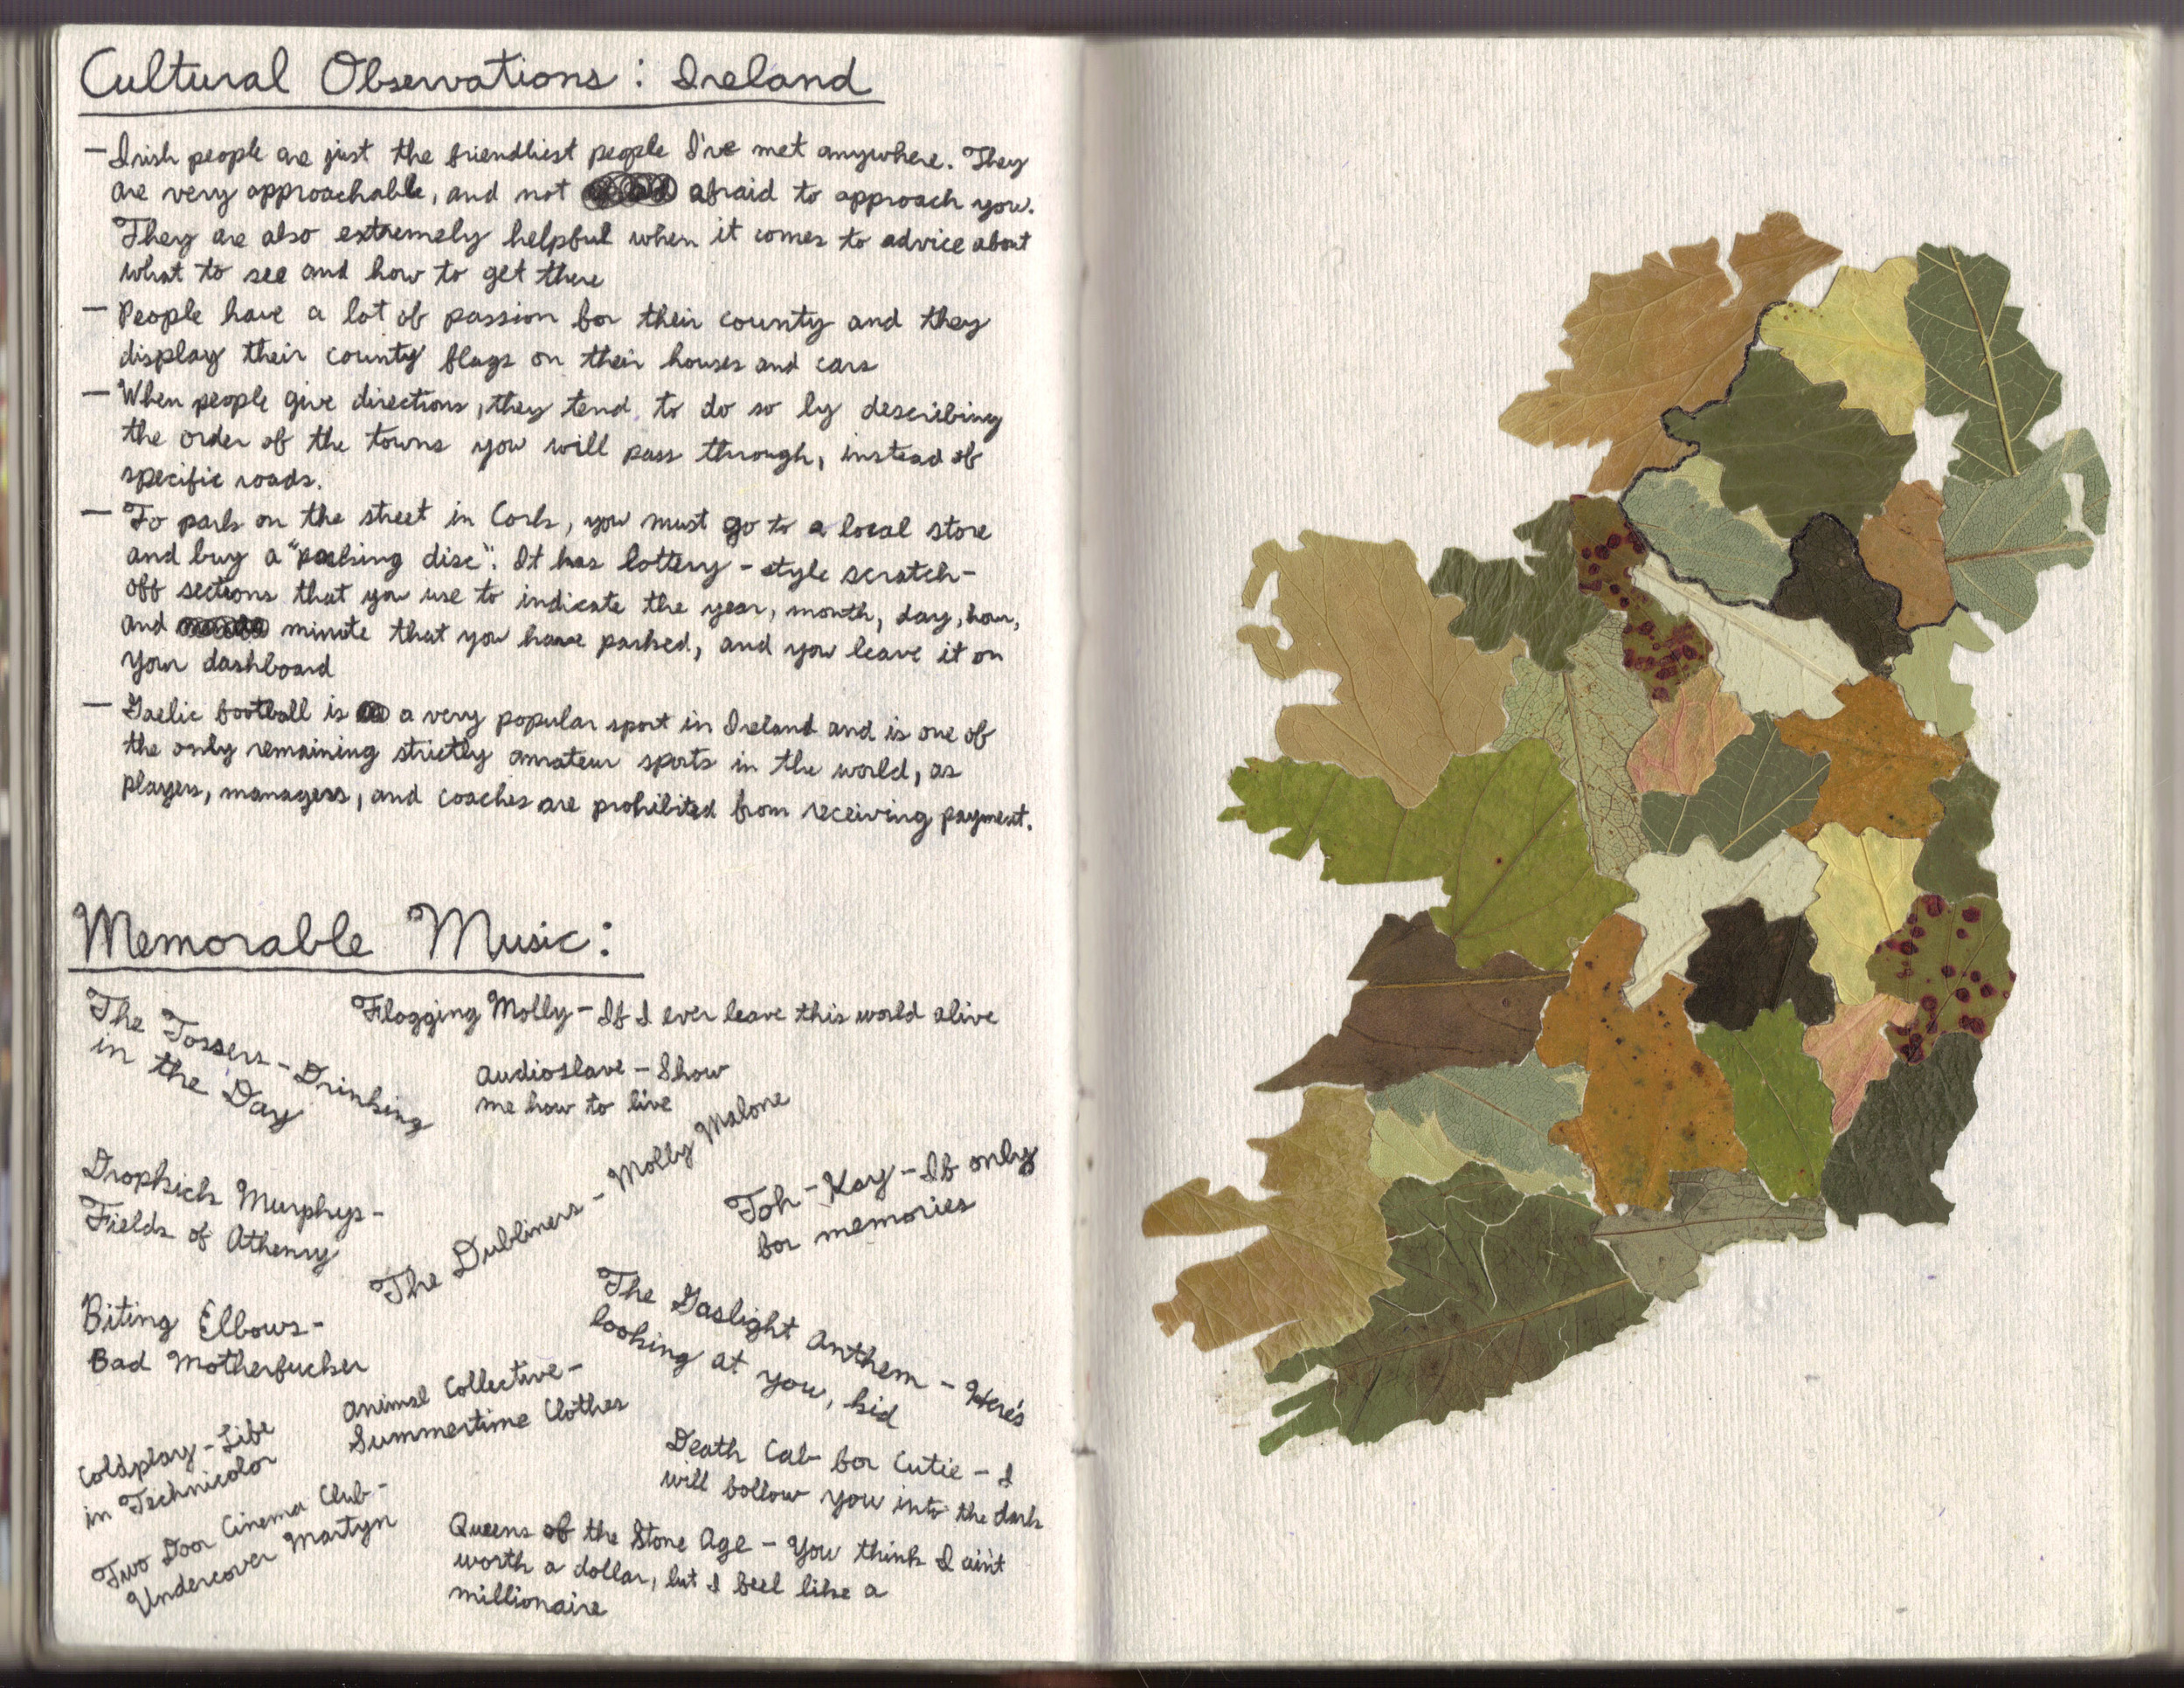 Cultural Observations: Ireland
- Irish people are just the friendliest people I've met anywhere. They
are very approachable, and not afraid to approach you.
They are also extremely helpful when it comes to advice about
what to see and how to get there
- People have a lot of passion for their county and they
display their county flags on their houses and cars
- When people give directions, they tend to do so by describing
the order of the towns you will pass through, instead of
specific roads.
- To park on the street in Cork, you must go to a local store
and buy a "parking disc". It has lottery-style scratch-
off sections that you use to indicate the year, month, day, hour,
and minute that you have parked, and you leave it on
your dashboard
- Gaelic football is a very popular sport in Ireland and is one of
the only remaining strictly amateur sports in the world, as
players, managers, and coaches are prohibited from receiving payment.
Memorable Music:
The Tossers - Drinking
in the Day
Flogging Molly - If I ever leave this world alive
Audioslave - Show
me how to live
Dropkick Murphys -
Fields of Athenry
The Dubliners - Molly Malone
Toh-Kay - If only
for memories
Biting Elbows -
Bad Motherfucker
The Gaslight Anthem - Here's
looking at you, kid
Animal Collective -
Summertime Clothes
Coldplay - Life
in Technicolor
Death Cab for Cutie - I
will follow you into the dark
Two Door Cinema Club -
Undercover Martyn
Queens of the Stone Age - You think I ain't
worth a dollar, but I feel like a
millionaire